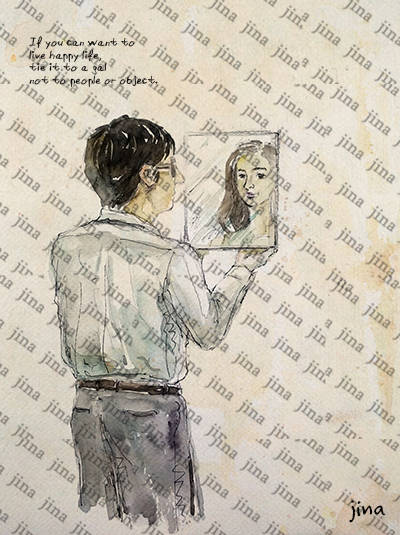 If you can want to
live happy life,
tie it to a gal
not to people or object.
jina